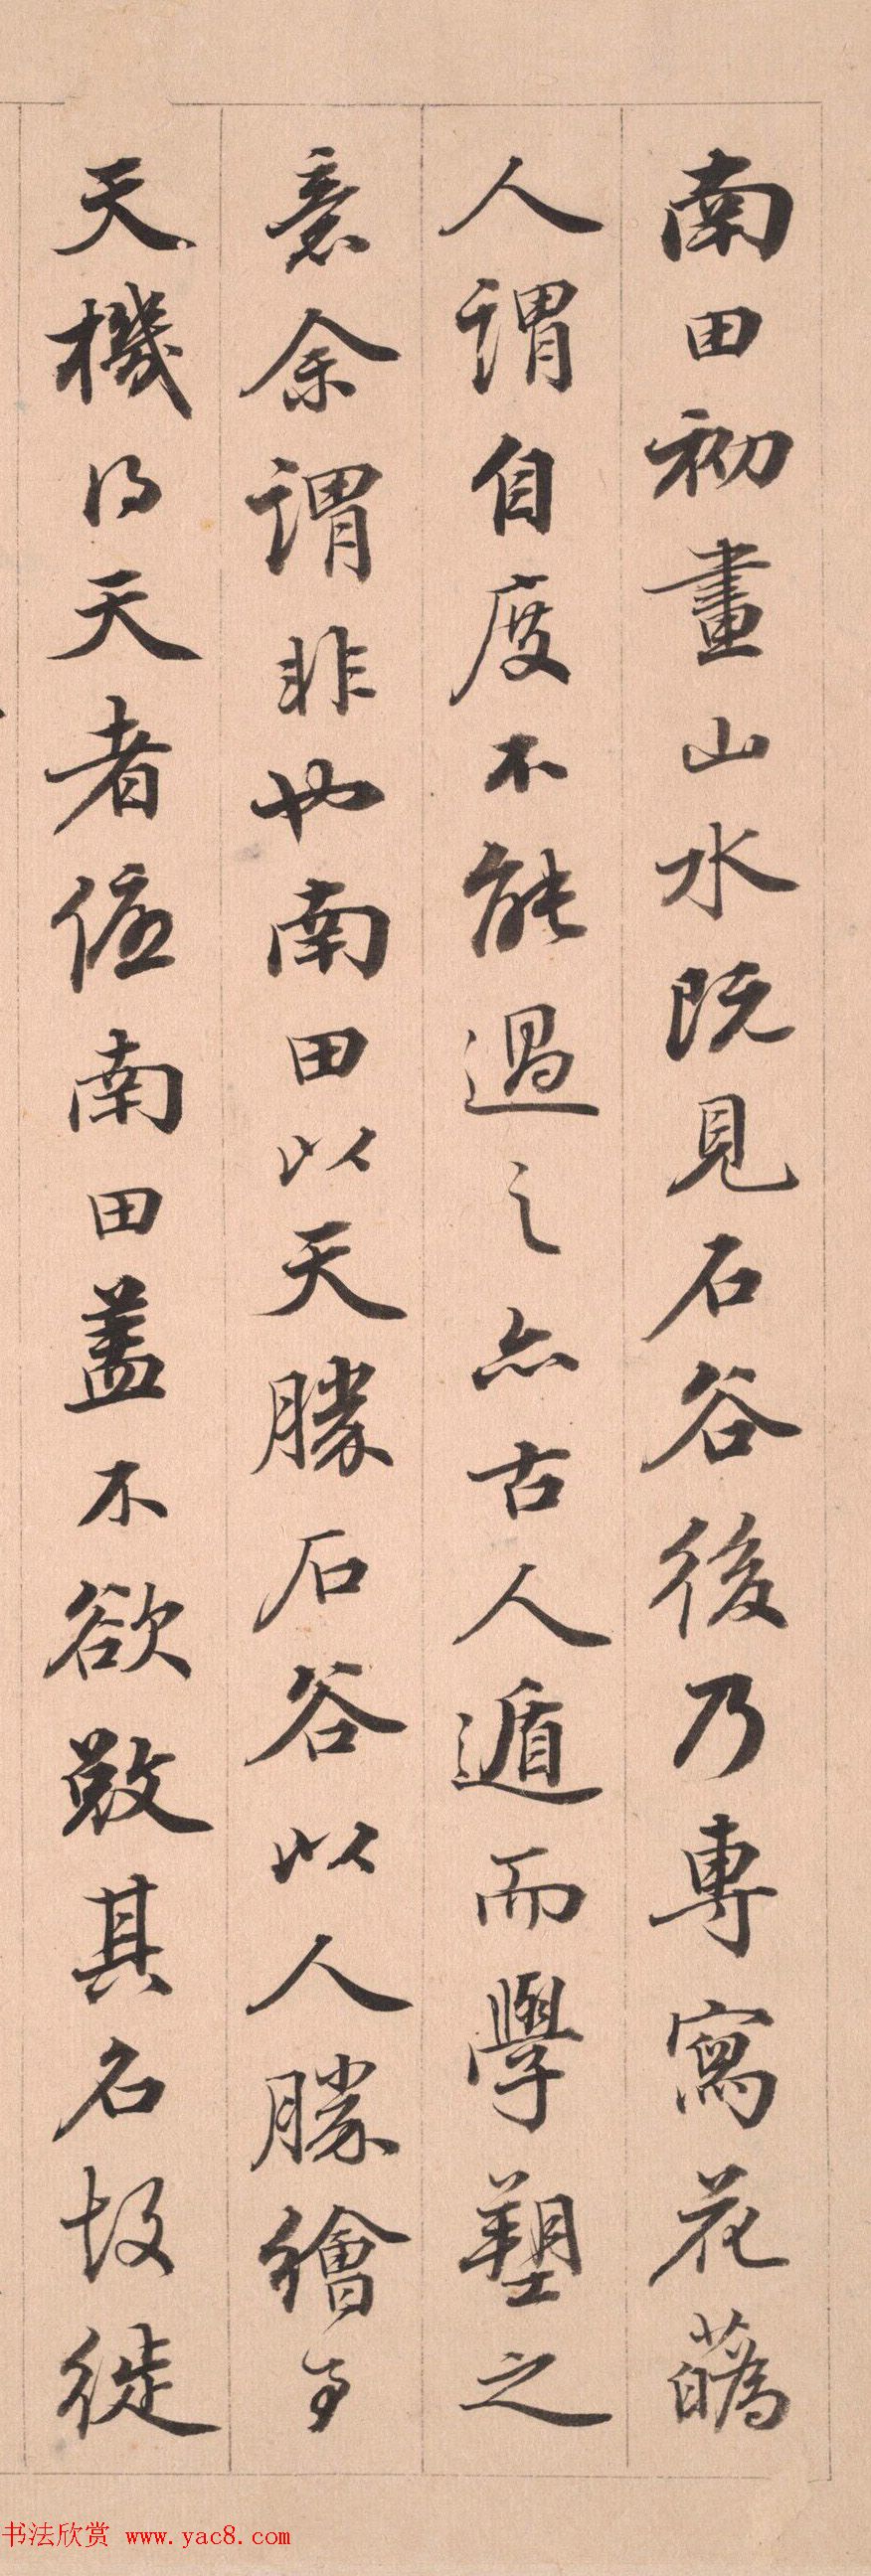 南田初畫山水既見石谷後乃專寫花蘤
人謂自度不能過之亦古人遁而學塑之
意余謂非也南田以天勝石谷以人勝繪事
天機得天者優南田蓋不欲敵其名故徙
书法欣赏 www.yac8.com